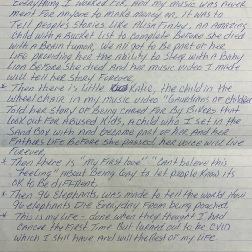 Everything I worked for, and my music was never
meant for anyone to make money on, it was to
Tell peoples stories like Alisa Tatley, an amazing
Child with a Bucket List to complete Before she died
with a Brain tumor, we all got to Be part of her
Life providing her the ability to sleep with a Baby
Lion before she died and her music video I made
will tell her story forever.
* Then there is Little Kalie, the child in the
wheelchair in my music video "Guardians of Children
Told her story of Being cared for by Bikers that
look out for abused Kids, a child who I set in the
Sand Box with and become part of her and her
Fathers life Before she passed her voice will live
Forever
* Then there is "My First Love" "Can't believe this
Feeling" about Being gay to let people know its
ok to be different.
* Then 96 elephants, was made to tell the world how
96 elephants die everyday from Being poached
* This is my life - done when they thought I had
cancer the first time But turned out to be CVID
which I still have and will the rest of my life